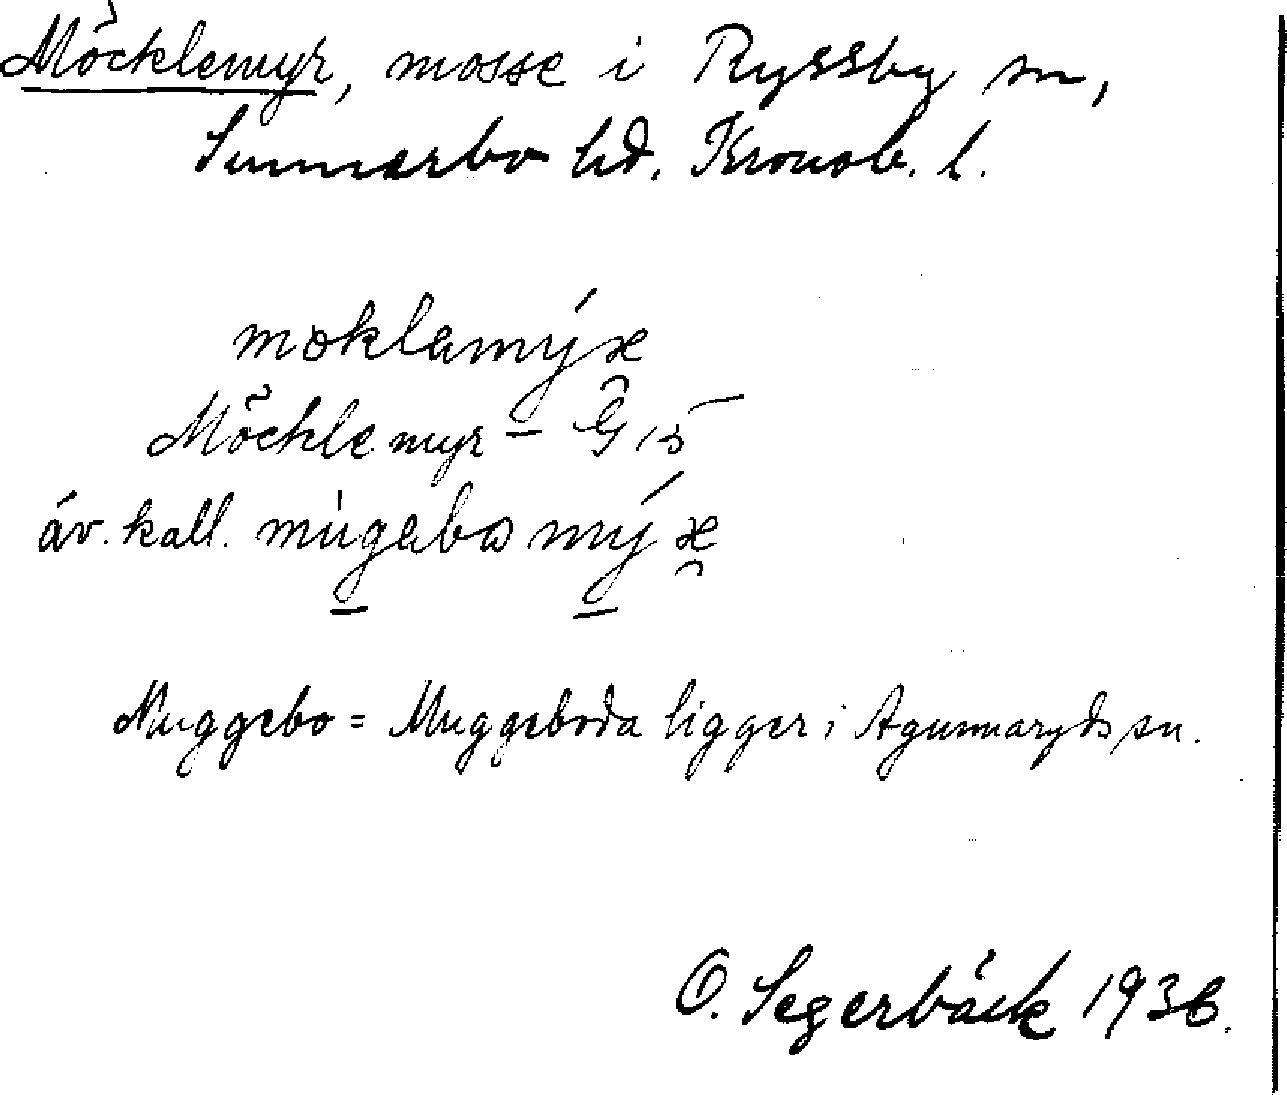 Möcklemyr, mosse i Ryssby sn,
Sunnerbo hd. Kronob. l.
moklamýr
Möcklemyr – G 15
äv. kall. mùgabo mýr
Muggebo = Muggeboda ligger i Agunnaryds sn.
O. Segerbäck 1936.